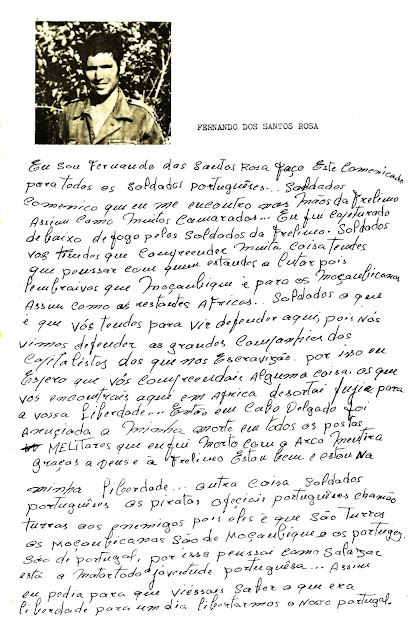 FERNANDO DOS SANTOS ROSA
Eu Sou Fernando dos Santos Rosa faço Este Comonicado
para todos os Soldados portuguêises... Soldados
Comonico que eu me encontro nas Mãos da Frelimo
Assim como Muitos Camarados... Eu fui Capturado
debaixo de fogo pelos Soldados da Frelimo. Soldados
vos tendes que Compreender Muita Coisa tendes
que penssar com quem estandes a lutar pois
lembraivos que Moçanbique é para os Moçanbicanos
Assim como as restantes Africas... Soldados o que
é que vós tendes para vir defender aqui, pois Nós
vimos defender as grandes Companhias dos
Capitalistas dos que nos Escravição. por isso eu
Espero que vós Compreendais Alguma coisa. os que
vos encontrais aqui em Africa desortai fugir para
a vossa liberdade... Então em Cabo Delgado foi
Anuçiada a Minha Morte em todos os postos
Melitares que eu fui Morto com o Arco Mentira
graças a Deus e à Frelimo Estou bem e estou Na
minha liberdade... outra Coisa Soldados
portuguêises os piratas ofeçiais portuguêises chamão
turras aos enemigos pois eles é que São Turras
os Moçanbicanos São de Moçanbique e os portugeses
São de portugal, por isse penssai como Salazar
está a Matar toda a joventude portuguêsa... Assim
eu pedia para que viéssais Saber o que era
liberdade para um dia libertarmos o Nosso portugal.